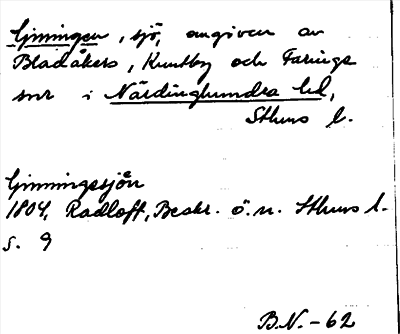 Gimmingen, sjö, omgiven av
Bladåkers, Knutby och Faringe
snr i Närdinghundra hd,
Sthms l.
Gimmingesjön
1804, Radloff, Beskr. ö. n. Sthms l.
s. 9
B.N. - 62